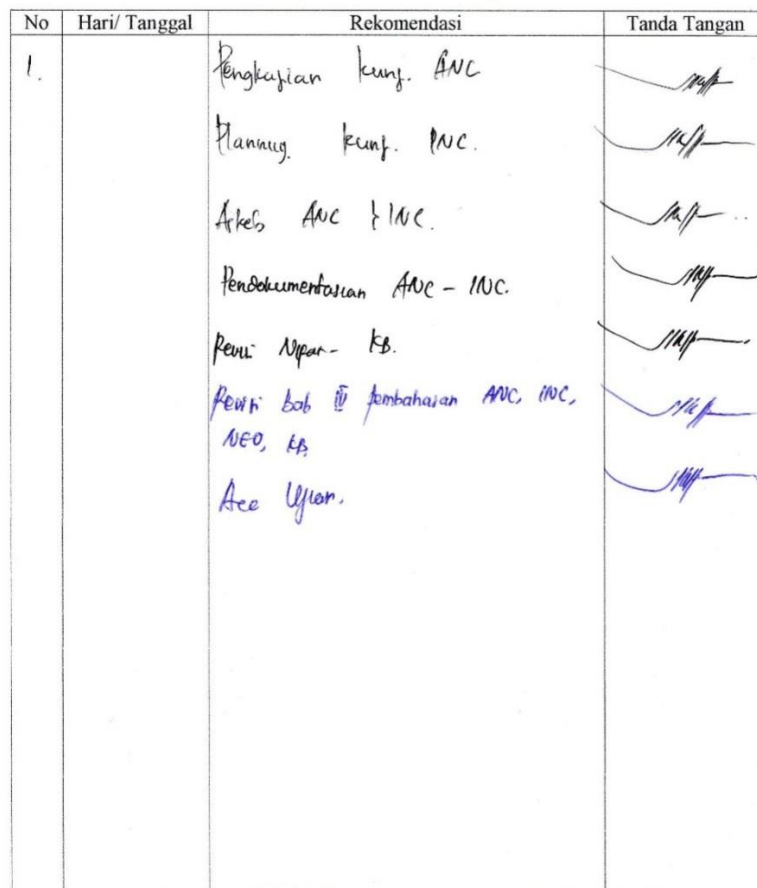 No Hari/ Tanggal Rekomendasi Tanda Tangan
1. Pengkajian kunj. ANC
Planning kunj. INC.
Askeb ANC & INC.
Pendokumentasian ANC - INC.
Revisi Nifas - KB.
Revisi bab IV pembahasan ANC, INC,
NEO, KB
Acc Ujian.